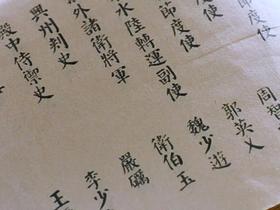 節度使 周智
節度使 郭英乂
水陸轉運副使 魏少遊
外諸衛將軍 衛伯玉
興州刺史 嚴礪
殿中侍禦史 李少
王